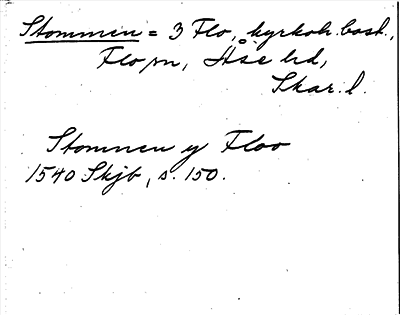 Stommen = 3 Flo, kyrkoh. bost.,
Flo sn, Åse hd,
Skar. l.
Stomnen y Floo
1540 Skjb, s. 150.